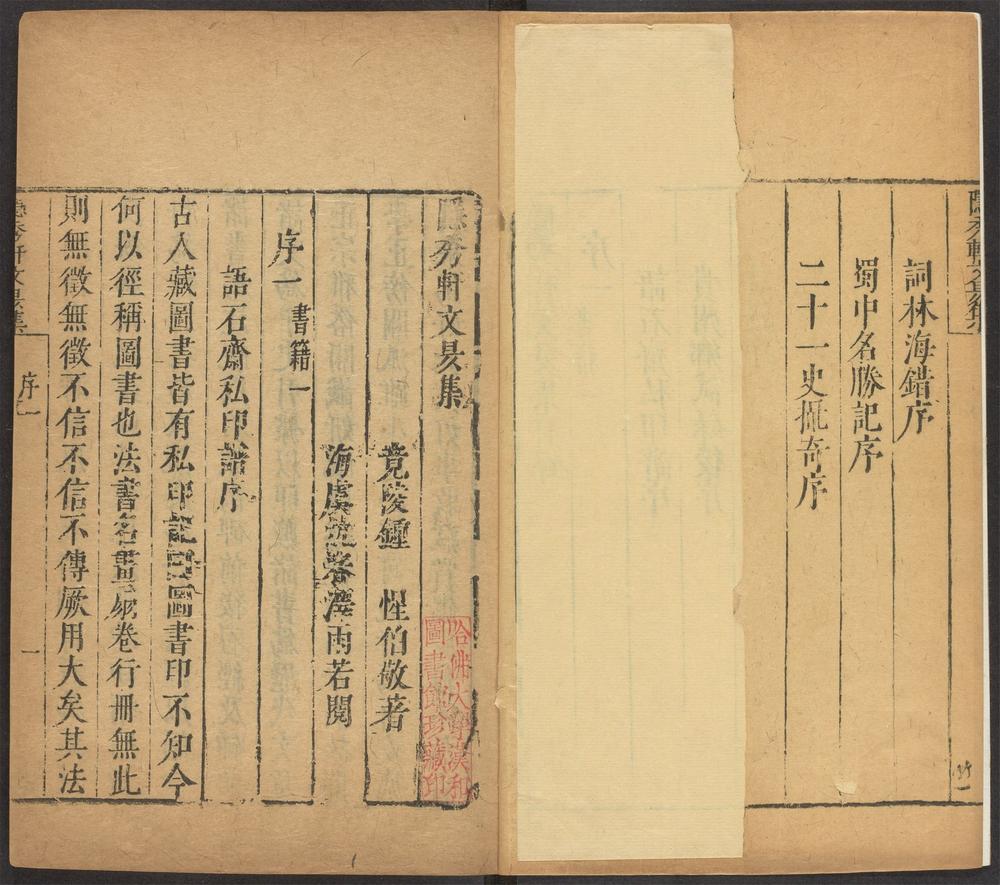 詞林海錯序
蜀中名勝記序
二十一史摭奇序
隱秀軒文昃集
竟陵鍾　惺伯敬著
海虞沈春澤雨若閱
序一
書籍一
語石齋私印譜序
古人藏圖書皆有私印記曰圖書印不知今
何以徑稱圖書也法書名畫絹卷行冊無此
則無徵無徵不信不信不傳厥用大矣其法
隱秀軒文昃集
序一
一
哈佛大學漢和
圖書館珍藏印